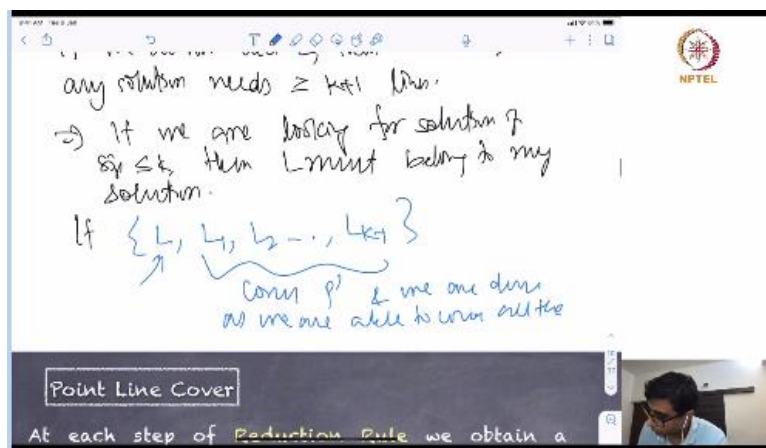 NPTEL
any solution needs ≥ k+1 lines.
⇒ If we are looking for solution of
size ≤ k, then L must belong to my
solution.
If { L, L1, L2 ..., Lk-1 }
cover P' & we are done
as we are able to cover all the
Point Line Cover
At each step of Reduction Rule we obtain a